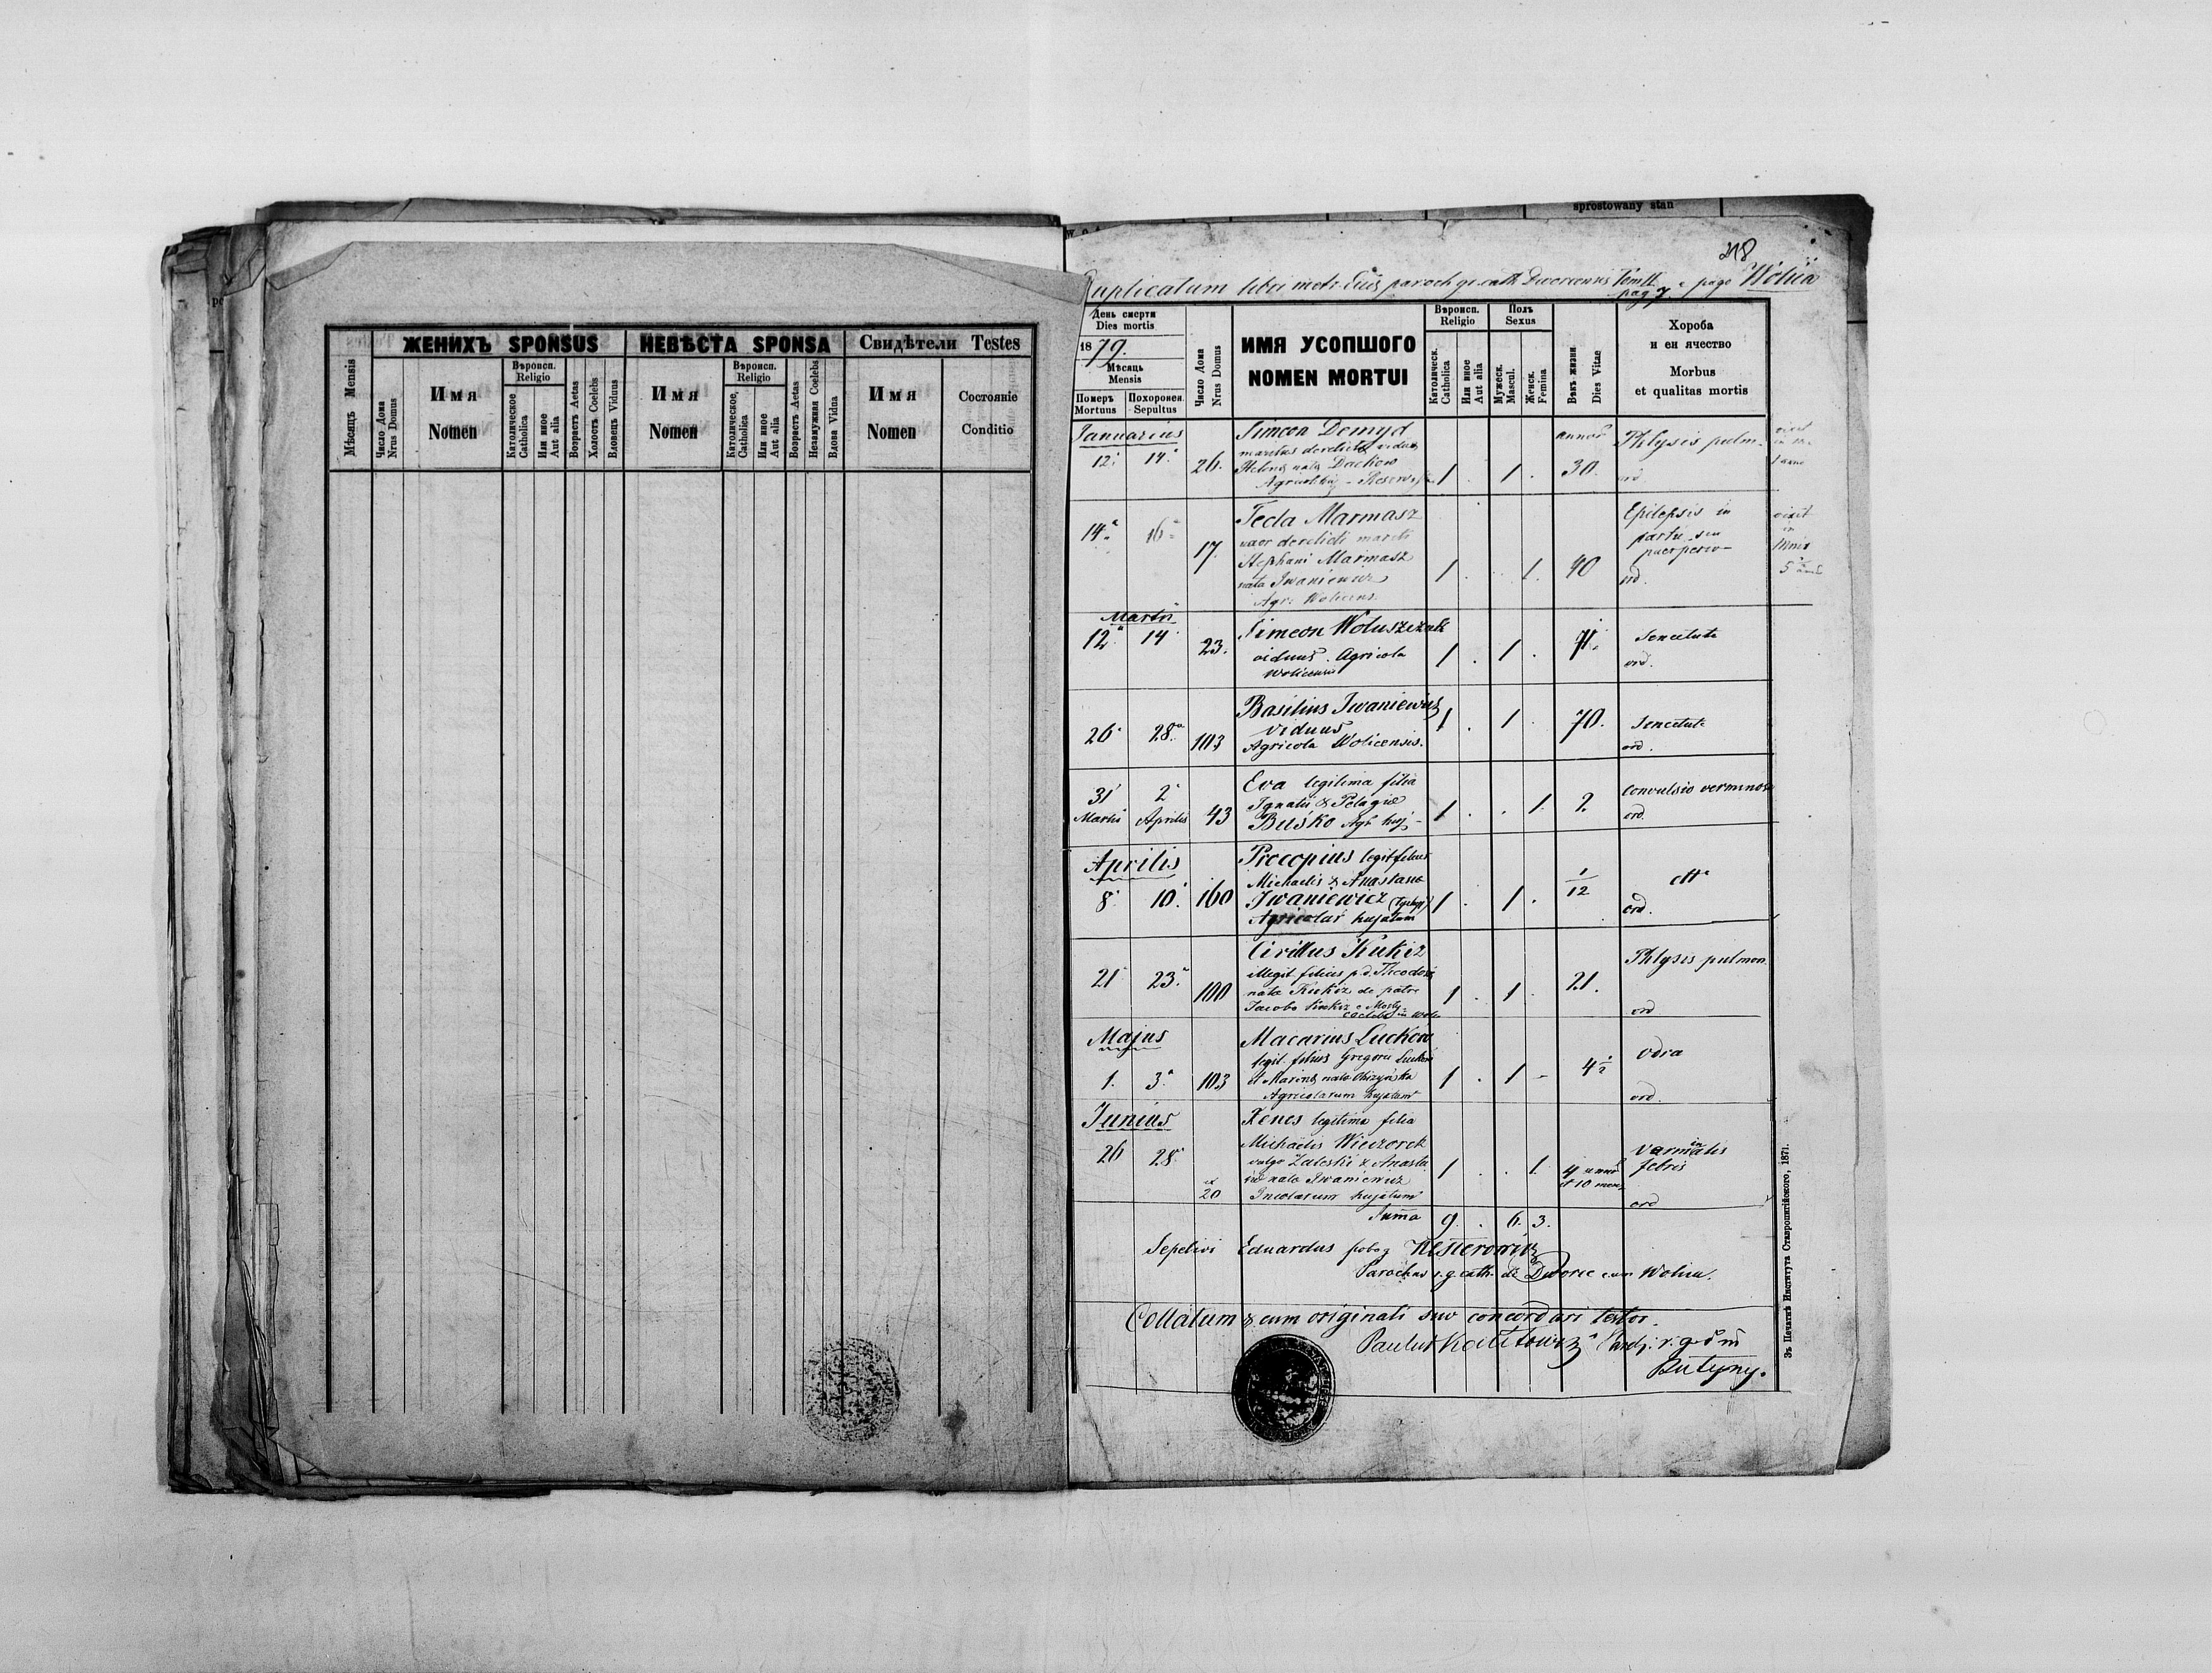 ЖЕНИХЪ SPONSUS
НЕВѢСТА SPONSA
Свидѣтели Testes
Мѣсяць Mensis
Число Дома
Nrus Domus
Имя
Nomen
Вѣроисп.
Religio
Католическое
Catholica
Или иное
Aut alia
Возрастъ Aetas
Холостъ Coelebs
Вдовецъ Viduus
Имя
Nomen
Вѣроисп.
Religio
Католическое
Catholica
Или иное
Aut alia
Возрастъ Aetas
Незамужная Coelebs
Вдова Vidua
Имя
Nomen
Состояніе
Conditio
sprostowany stan
218
Duplicatum libri metr. paroch gr. cath Tom II pag 7 e pago Wolica
День смерти
Dies mortis
1879.
Мѣсяць
Mensis
Померъ
Mortuus
Похоронен.
Sepultus
Число Дома
Nrus Domus
ИМЯ УСОПШОГО
NOMEN MORTUI
Вѣроисп.
Religio
Католическ.
Catholica
Или иное
Aut alia
Полъ
Sexus
Мужеск.
Mascul.
Женск.
Femina
Вѣкъ жизни
Dies Vitae
Хороба
и еи ячество
Morbus
et qualitas mortis
Januarius
12. 14. 26. Simeon Demyd 1 . 1 . annor 30. Phtysis pulm.
maritus derelicta vidua
Helena nata
ord
14 16 17. Tecla Marmasz 1 . . 1. 40 Epilepsis in
uxor derelicti mariti partu seu
Stephani Marmasz puerperio
nata Iwaniewicz ord.
Agr. Wolicens.
Martii
12 14 23. Simeon Woluszczak 1 . 1 . 71. Senectute
viduus. Agricola ord.
Wolicensis
26 28 103 Basilius Iwaniewicz 1 . 1 . 70. Senectute
viduus ord.
Agricola Wolicensis.
31 2 Eva legitima filia Convulsio verminosa
Martii Aprilis 43 Ignatii & Pelagie 1 . . 1. 2. ord.
Buśko Agr. huj.
Aprilis
8 10. 160 Procopius legit filius 1 . 1 . 1/12 ord.
Michaelis & Anastasie
Iwaniewicz
Agricolar hujatum
21 23. 100 Cirillus Kukiz 1 . 1 . 21. Phtysis pulmon.
illegit. filius p.d. Theodora
nata Kukiz de patre ord
Jacobo
Majus
1. 3. 103 Macarius Luckow 1 . 1 - 4 1/2 odra
legit. filius Gregorii
et Marina nata ord.
Agricolarum hujatum
Junius
26 28 20 Xenes legitima filia 1 . . 1. 4 et 10 febris
Michaelis Wieczorek
vulgo Zaleski & Anasta
sie nata Iwaniewicz
Incolarum hujatum ord
Suma 9. . 6. 3.
Sepelivi Eduardus Nesterowicz
Parochus r. g. cath. de Dworce cum Wolica.
Collatum & cum originali suo concordari testor.
Paulus
Butyny.
Зъ Печатнѣ Института Ставропигійского, 1871.